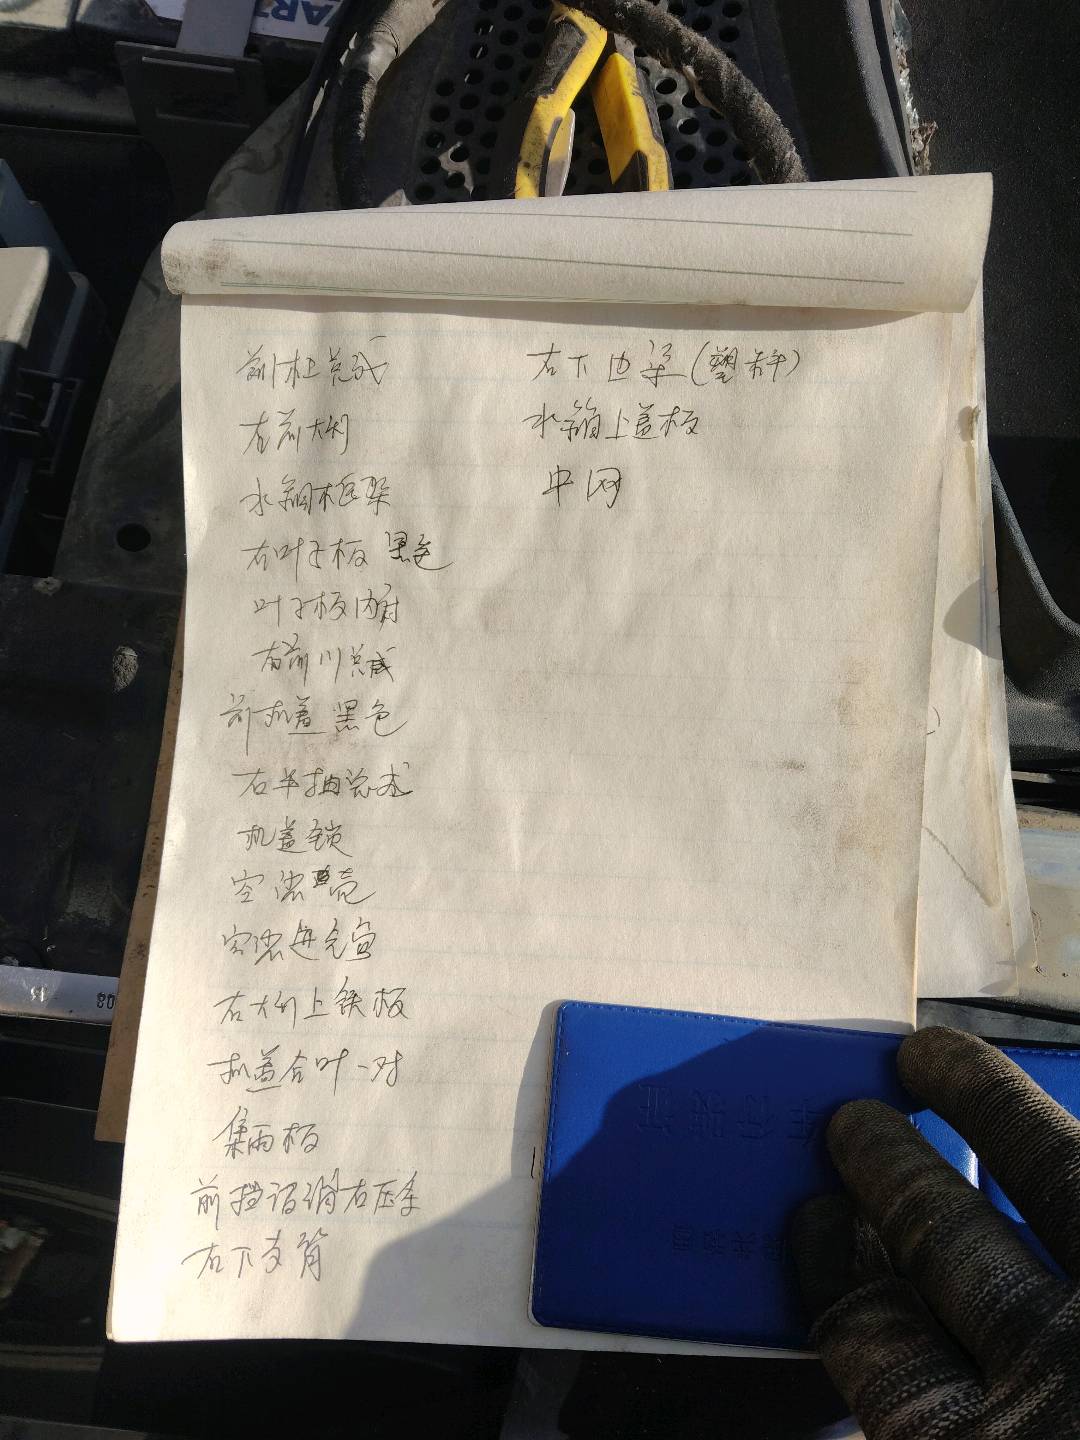 ART
前杠总成
右前大灯
水箱框架
右叶子板 黑色
叶子板内衬
右前门总成
前机盖 黑色
右半轴总成
机盖锁
空滤壳
空滤进气
右大灯上铁板
机盖合叶一对
集雨板
前挡玻璃右压条
右下支臂
右下边梁(塑料)
水箱上盖板
中网
80
行驶证